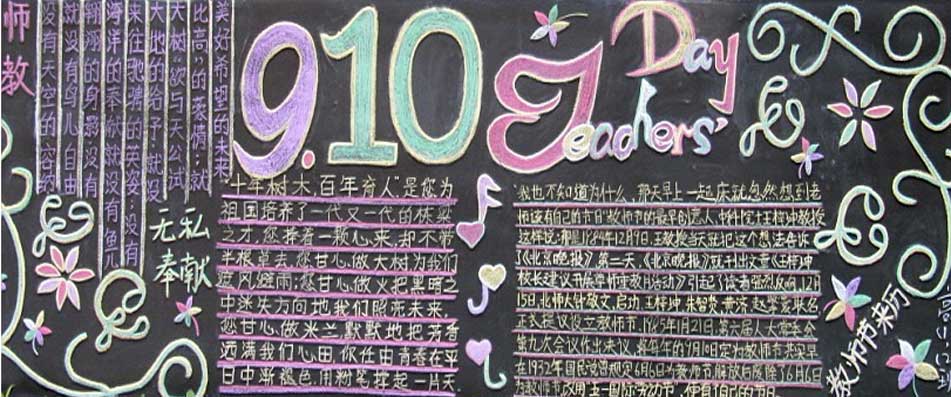 师教
没有天空的容纳
就没有鸟儿自由
翱翔的身影;没有
海洋的奉献就没有鱼儿
来往驰骋的英姿;没有
大地的给予就没
大树“欲与天公试
比高”的豪情;就
美好希望的未来
无私
奉献
9.10
Teachers' Day
“十年树木,百年育人”是您为
祖国培养了一代又一代的栋梁
之才,您捧着一颗心来,却不带
半根草去,您甘心做大树为我们
遮风避雨;您甘心做火把黑暗之
中迷失方向地我们照亮未来,
您甘心做米兰默默地把芳香
洒满我们心田,你任由青春在平
日中渐褪色,用粉笔撑起一片天.
我也不知道为什么,那天早上一起床就忽然想到老
师该有自己的节日”教师节的最早创意人,中科院士王梓坤教授
这样说:那是1984年12月9日,王教授当天就把这个想法告诉
了《北京晚报》第二天,《北京晚报》就刊出文章《王梓坤
校长建议开展尊师重教月活动》引起了读者强烈反响,12月
15日,北师大钟敬文,启功,王梓坤,朱智贤,黄济,赵擎寰联名
正式提议设立教师节,1985年1月21日,第六届人大常委会
第九次会议作出决议,将每年的9月10日定为教师节,其实早
在1932年国民党曾规定6月6日为教师节,解放后废除了6月6日
为教师节,改用五一国际劳动节,
教师节来历